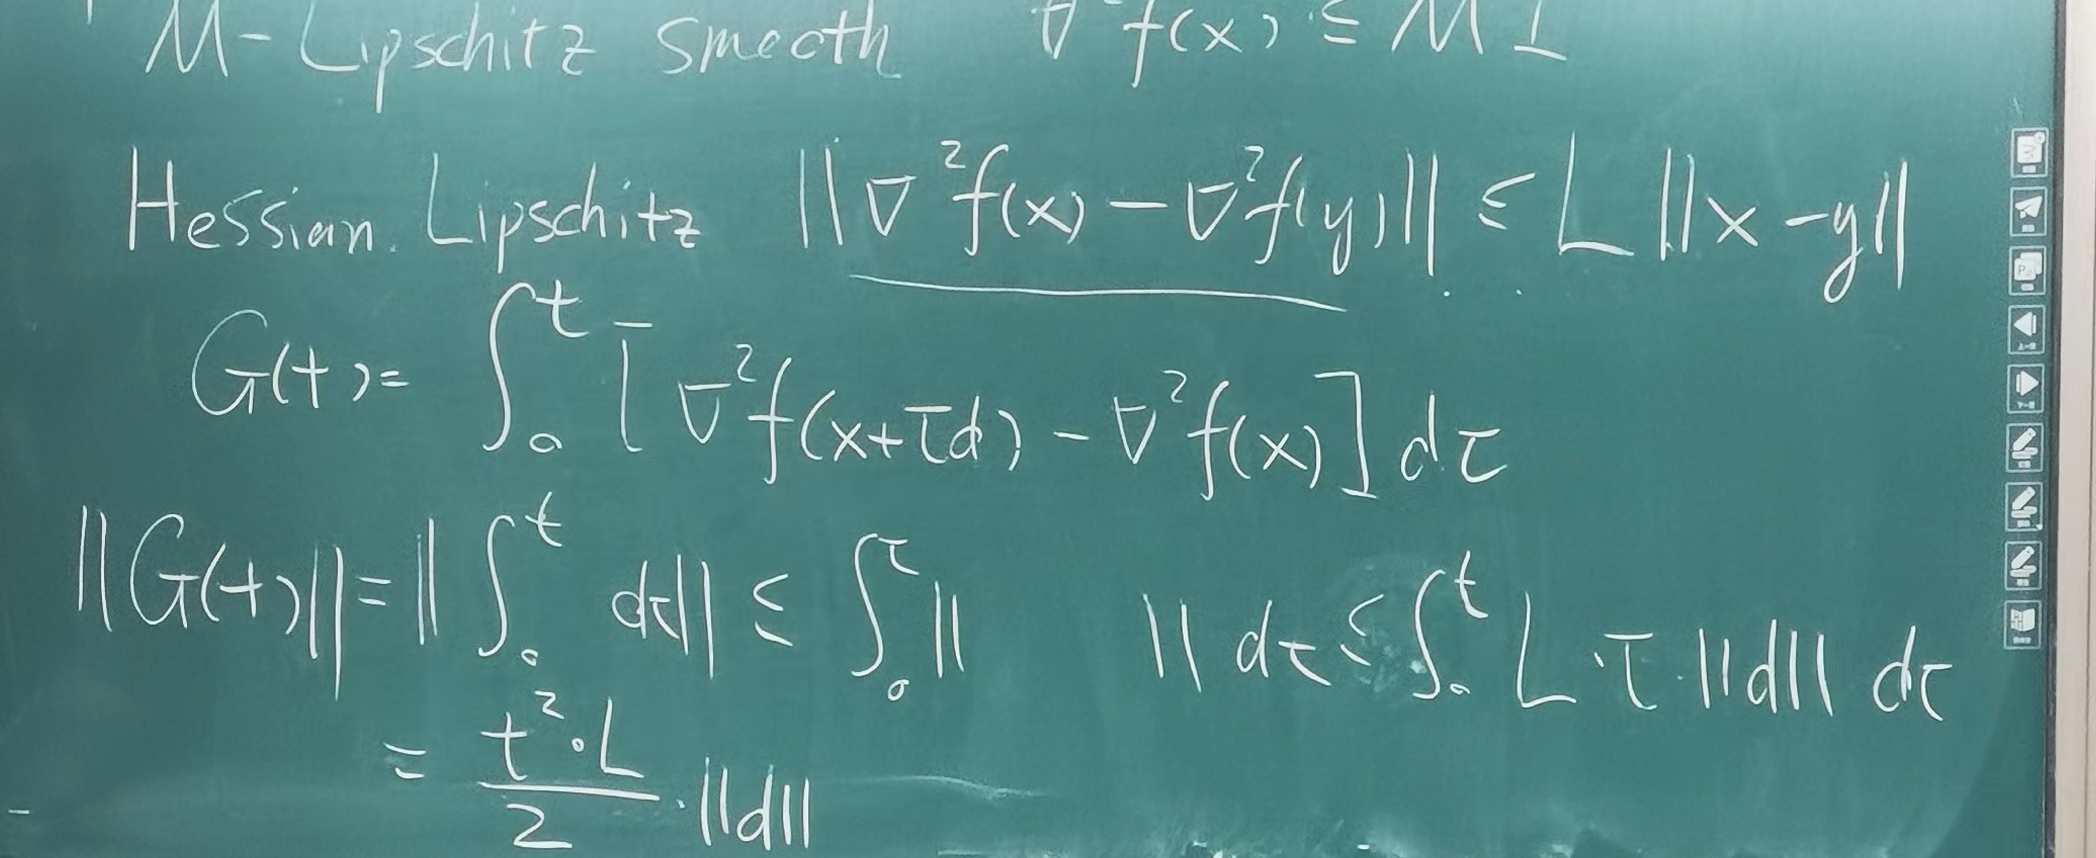 M-Lipschitz smooth ∇²f(x) ≤ M I
Hessian Lipschitz ||∇²f(x) - ∇²f(y)|| ≤ L ||x - y||
G(t) = ∫₀ᵗ [∇²f(x+τd) - ∇²f(x)] dτ
||G(t)|| = || ∫₀ᵗ dτ|| ≤ ∫₀^τ || || dτ ≤ ∫₀ᵗ L · τ · ||d|| dτ
= t² · L / 2 · ||d||